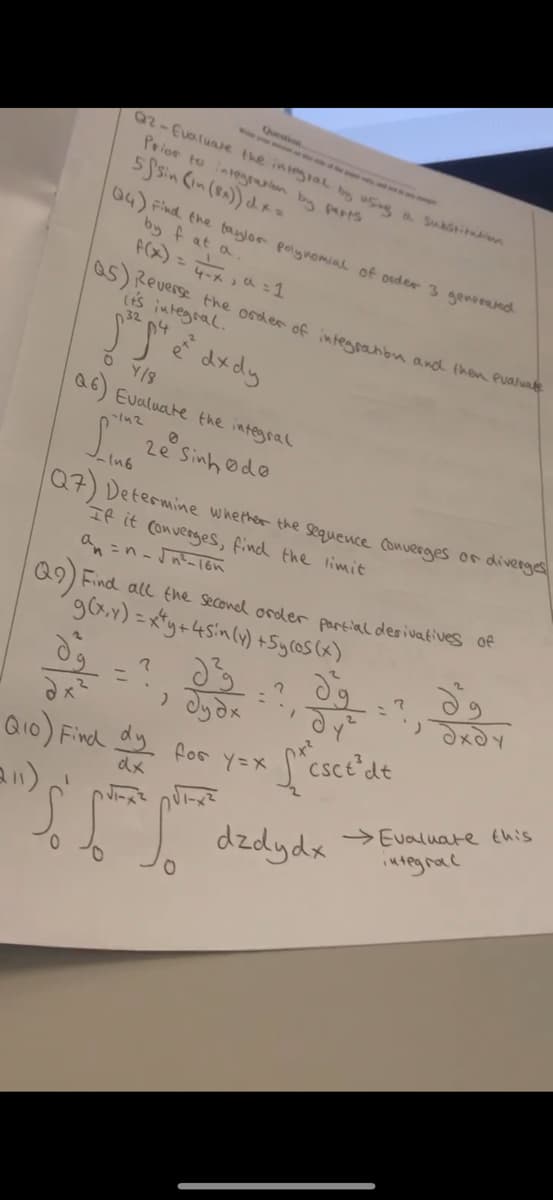 Question
Q2-Evaluate the integral by using a substitution
Prior to integration by parts
5∫sin(ln(8x))dx=
Q4) Find the taylor polynomial of order 3 generated
by f at a.
f(x) = 1/(4-x), a=1
Q5) Reverse the order of integration and then evaluate
its integral.
∫_0^32 ∫_{y/8}^4 e^{x^2} dxdy
Q6) Evaluate the integral
∫_{-ln6}^{-ln2} 2e^θ sinhθdθ
Q7) Determine whether the sequence converges or diverges
If it converges, find the limit
a_n = n - √(n²-16n)
Q9) Find all the second order partial derivatives of
g(x,y) = x⁴y+4sin(y)+5ycos(x)
∂²g/∂x² = ?, ∂²g/∂y∂x = ?, ∂²g/∂y² = ?, ∂²g/∂x∂y
Q10) Find dy/dx for y=x ∫_2^{x²} csct³dt
Q11) ∫_0^1 ∫_0^{√(1-x²)} ∫_0^{√(1-x²)} dzdydx → Evaluate this
integral